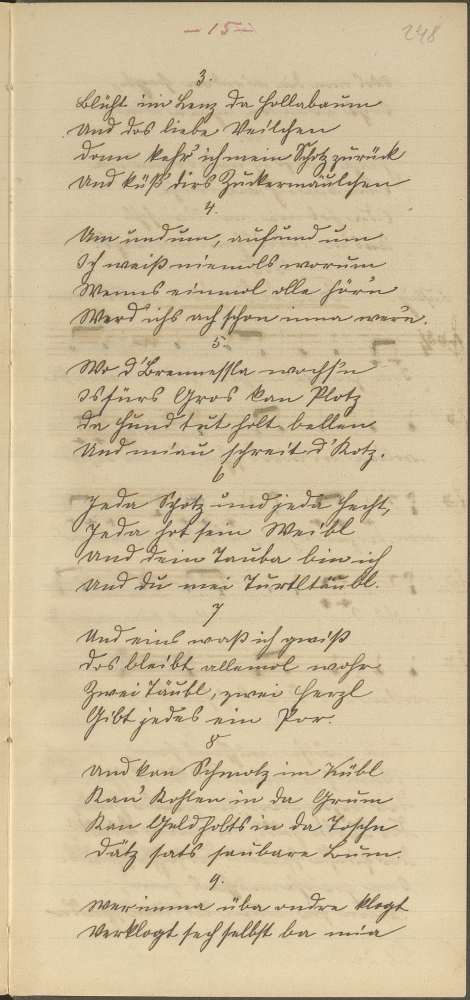 - 15 -
248
3.
Blüht im Lenz da Hollabaum
Und dos liebe Veilchen
Donn kehr' ich mein Schotz zurück
Und küß' dirs Zuckermäulchen
4.
Um und um, auf und um
Ich weiß niemols worum
Wenns einmol olle hör'n
Werd' ichs ach schon inna wer'n.
5.
Wo d' Brennessla wochs'n
Is fürs Gros kan Plotz
Da Hund tut holt bellen
Und miau schreit d' Kotz.
6
Jeda Spotz und jeda Hecht,
Jeda hot sein Weibl
Und dein Tauba bin ich
Und du mei Turtltäubl.
7
Und eins waß ich gwiß
Dos bleibt allemol wohr
Zwei Täubl, zwei Herzl
Gibt jedes ein Por.
8
Und kan Schmolz im Kübl
Kan Kohlen in da Grum
Kan Geld hobts in da Toschn
Dätz sats saubare Bum.
9.
Wer imma üba ondre klogt
Verklogt sech selbst ba mia